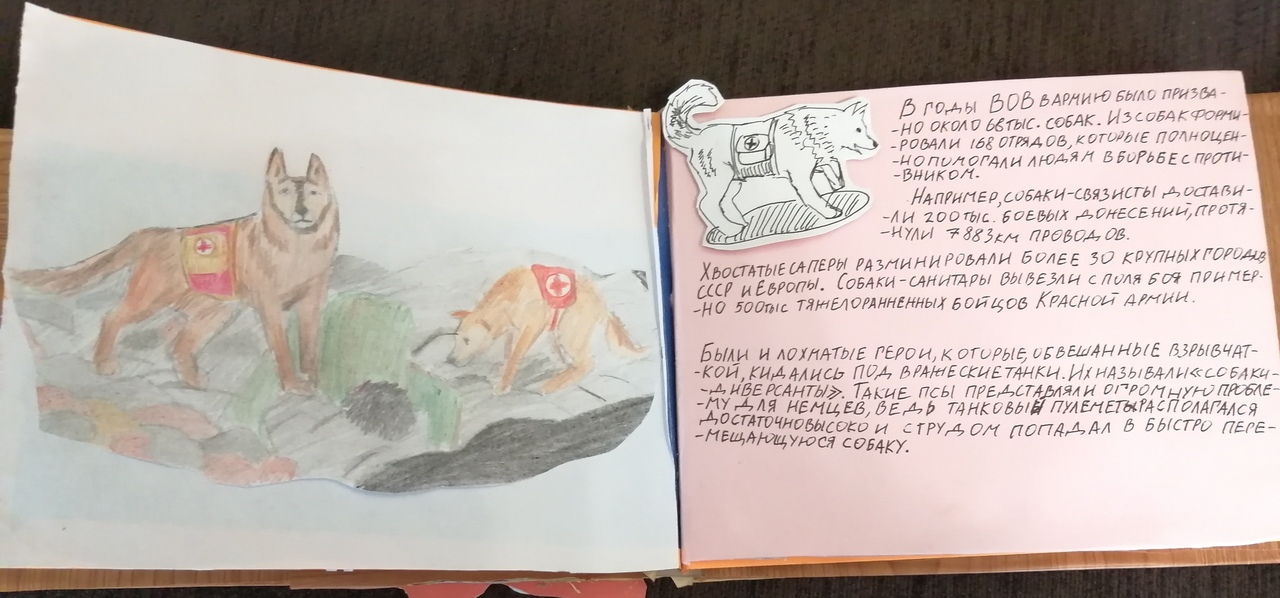 В годы ВОВ в армию было призва-
-но около 68 тыс. собак. Из собак форми-
-ровали 168 отрядов, которые полноцен-
-но помогали людям в борьбе с проти-
-вником.
Например, собаки-связисты достави-
-ли 200 тыс. боевых донесений, протя-
-нули 7883 км проводов.
Хвостатые саперы разминировали более 30 крупных городов
СССР и Европы. Собаки-санитары вывезли с поля боя пример-
-но 500 тыс тяжелораненных бойцов Красной Армии.
Были и лохматые герои, которые, обвешанные взрывчат-
-кой, кидались под вражеские танки. Их называли «собаки-
-диверсанты». Такие псы представляли огромную пробле-
-му для немцев, ведь танковый пулемет располагался
достаточно высоко и с трудом попадал в быстро пере-
-мещающуюся собаку.